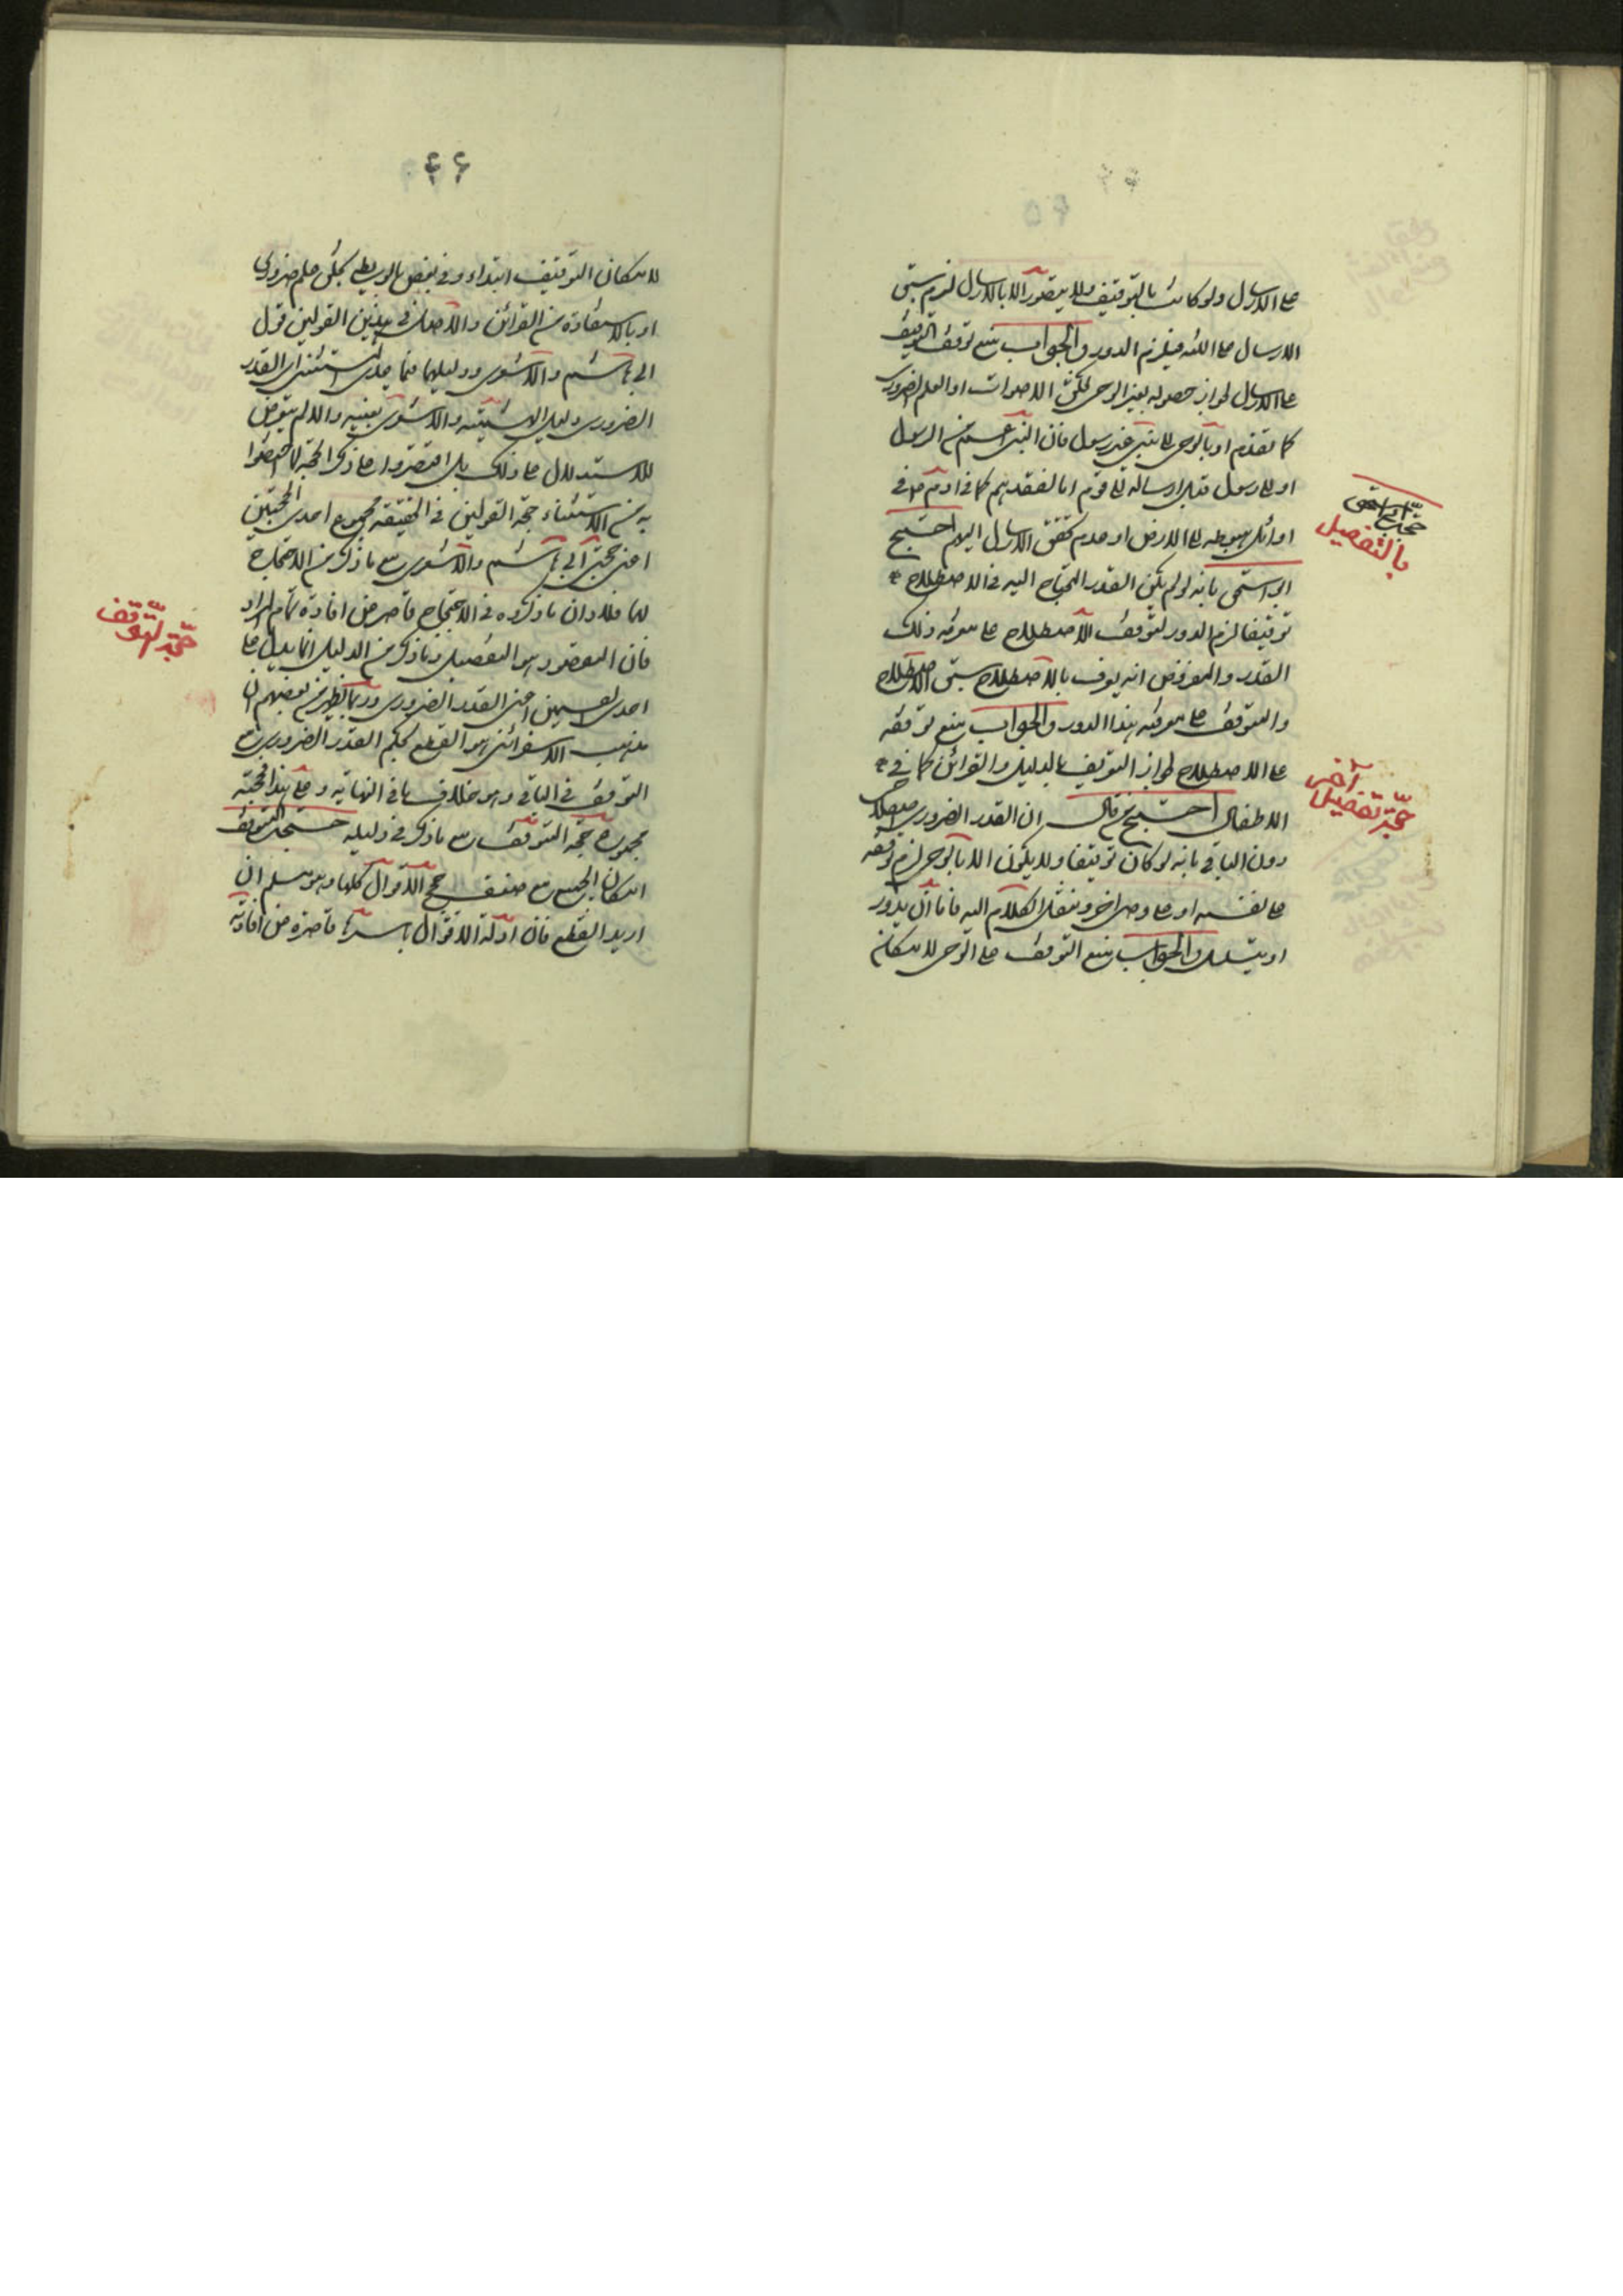 على الارسال ولو كانت بالتوقيف ولا يتصور الا بالارسال لزم سبق
الارسال على اللغه فيلزم الدور والجواب بمنع توقف التوقيف
على الارسال لجواز حصوله بغير الوحى كخلق الاصوات او العلم الضرورى
كما تقدم او بالوحى الى نبى غير رسول فان النبى اعم من الرسول
او الى رسول قبل ارساله الى قوم اما لفقدهم كما فى ادم ع فى
اوائل هبوطه الى الارض او عدم تحقق الارسال اليهم احتج
ابو اسحق بانه لو لم يكن القدر المحتاج اليه فى الاصطلاح
توقيفا لزم الدور لتوقف الاصطلاح على معرفه ذلك
القدر والمفروض انه يعرف بالاصطلاح سبق الاصطلاح
والتوقف على معرفته هذا الدور والجواب بمنع توقفه
على الاصطلاح لجواز التعريف بالبديل والقرائن كما فى
الاطفال احتج من قال ان القدر الضرورى اصطلاحى
دون الباقى بانه لو كان توقيفا ولا يكون الا بالوحى لزم توقفه
على نفسه او على وحى اخر وننقل الكلام اليه فاما ان يدور
او يتسلسل والجواب بمنع التوقف على الوحى لامكان
حجة ابى اسحق
بالتفصيل
حجة تفصيل آخر
۶۶
لامكان التوقيف ابتداء وفى بعض بالوسط بخلق علم ضرورى
او بالاستفادة من القرائن والاصل فى هذين القولين قول
ابى هاشم والاشعرى ودليلهما فيما عدى المستثنى اى القدر
الضرورى دليل البهشميته والاشعرى بعينه والا لم يتعرض
للاستدلال على ذلك بل اقتصروا على ذكر الحجة لما اختصوا
به من الاستثناء حجة القولين فى الحقيقة مجموع احدى الحجتين
اعنى حجتى ابى هاشم والاشعرى مع ما ذكر من الاحتجاج
لهما فلا وان ما ذكروه فى الاحتجاج قاصر عن افادة تمام المراد
فان المقصود هو التفصيل وما ذكر من الدليل انما يدل على
احدى القسمين اعنى القدر الضرورى وربما يظهر من بعضهم ان
مذهب الاسفرائنى هو القطع بحكم القدر الضرورى مع
التوقف فى الباقى وهو خلاف ما فى النهاية وعلى هذا فحجته
مجموع حجة المتوقف مع ما ذكر فى دليله حجة التوقف
امكان الجميع مع ضعف حجج الاقوال كلها وهو مسلم ان
اريد القطع فان ادلة الاقوال باسرها قاصرة عن افادته
حجة التوقف